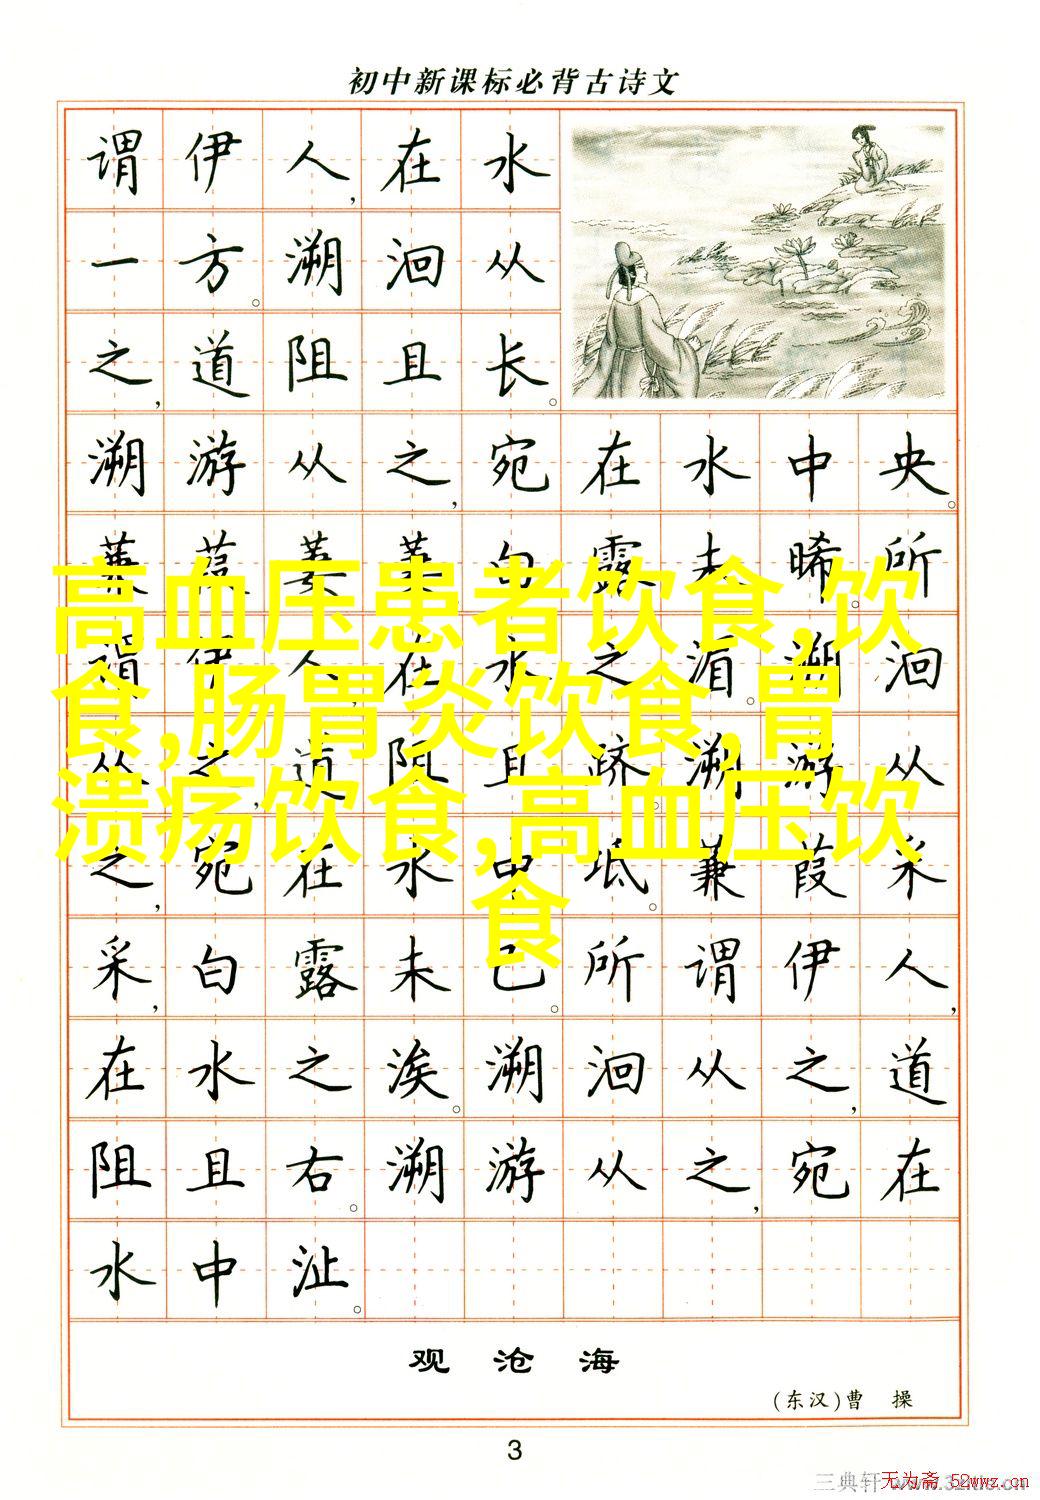 初中新课标必背古诗文
谓伊人,在水
一方。溯洄从
之,道阻且长。
溯游从之,宛在水中央。
蒹葭萋萋,白露未晞。所
谓伊人,在水之湄。溯洄
从之,道阻且跻。溯游从
之,宛在水中坻。蒹葭采
采,白露未已。所谓伊人,
在水之涘。溯洄从之,道
阻且右。溯游从之,宛在
水中沚。
高血压患者饮食,饮
食,肠胃炎饮食,胃
溃疡饮食,高血压饮
食
观沧海
(东汉)曹操
3
三典轩
无为斋 52wwz.cn